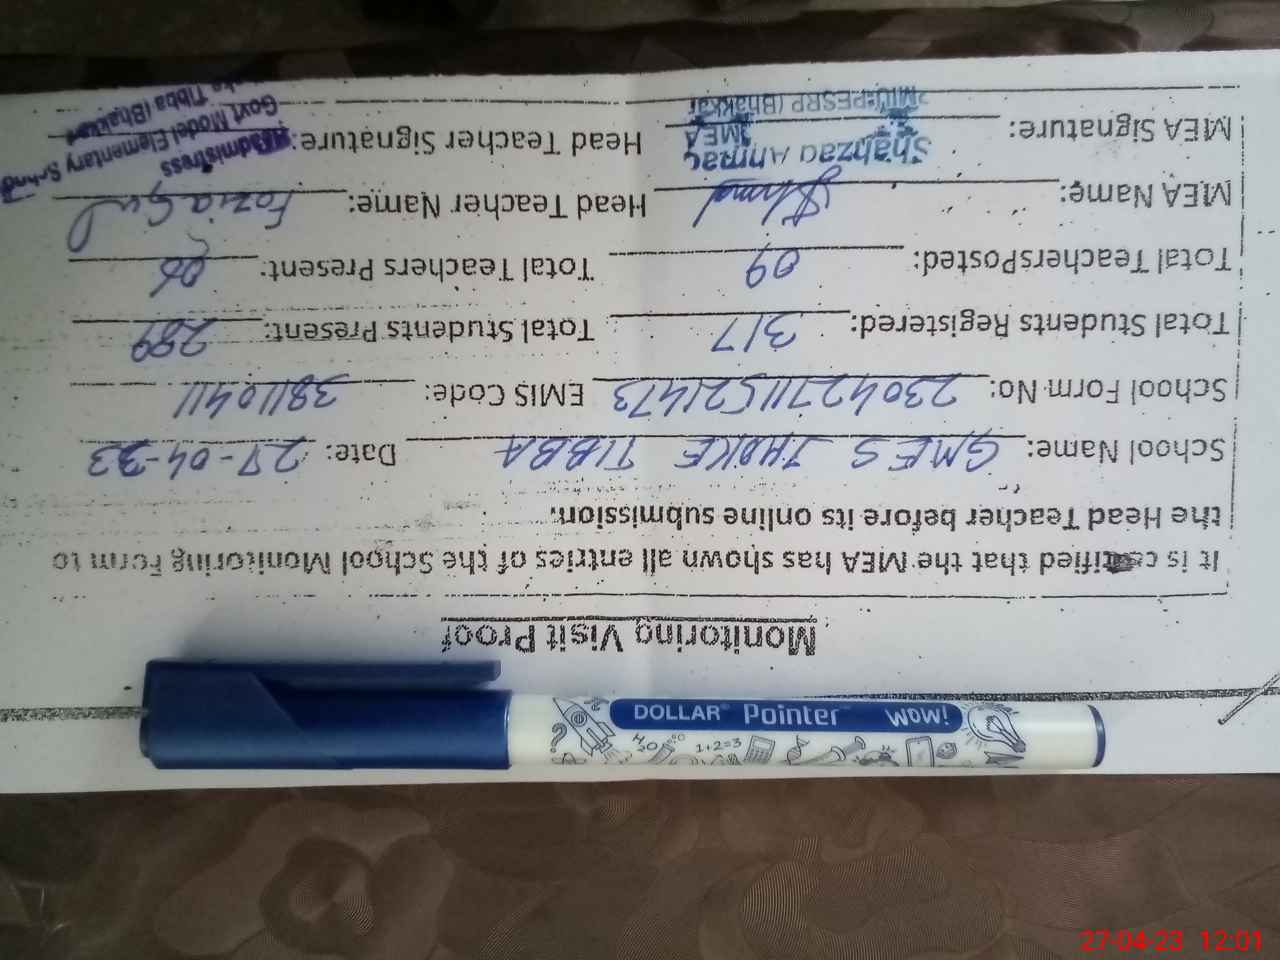 Monitoring Visit Proof
It is certified that the MEA has shown all entries of the School Monitoring Form to
the Head Teacher before its online submission.
School Name: GMES JHOKE TIBBA Date: 27-04-23
School Form No: 23042711521473 EMIS Code: 38110411
Total Students Registered: 317 Total Students Present: 289
Total TeachersPosted: 09 Total Teachers Present: 06
MEA Name: Head Teacher Name: Fozia Gul
MEA Signature: Head Teacher Signature:
Shahzad Ahmad
MEA
PMIU-PESRP (Bhakkar)
Headmistress
Govt Model Elementary School
Tibba (Bhakkar)
DOLLAR Pointer WOW!
H2O 1+2=3
27-04-23 12:01